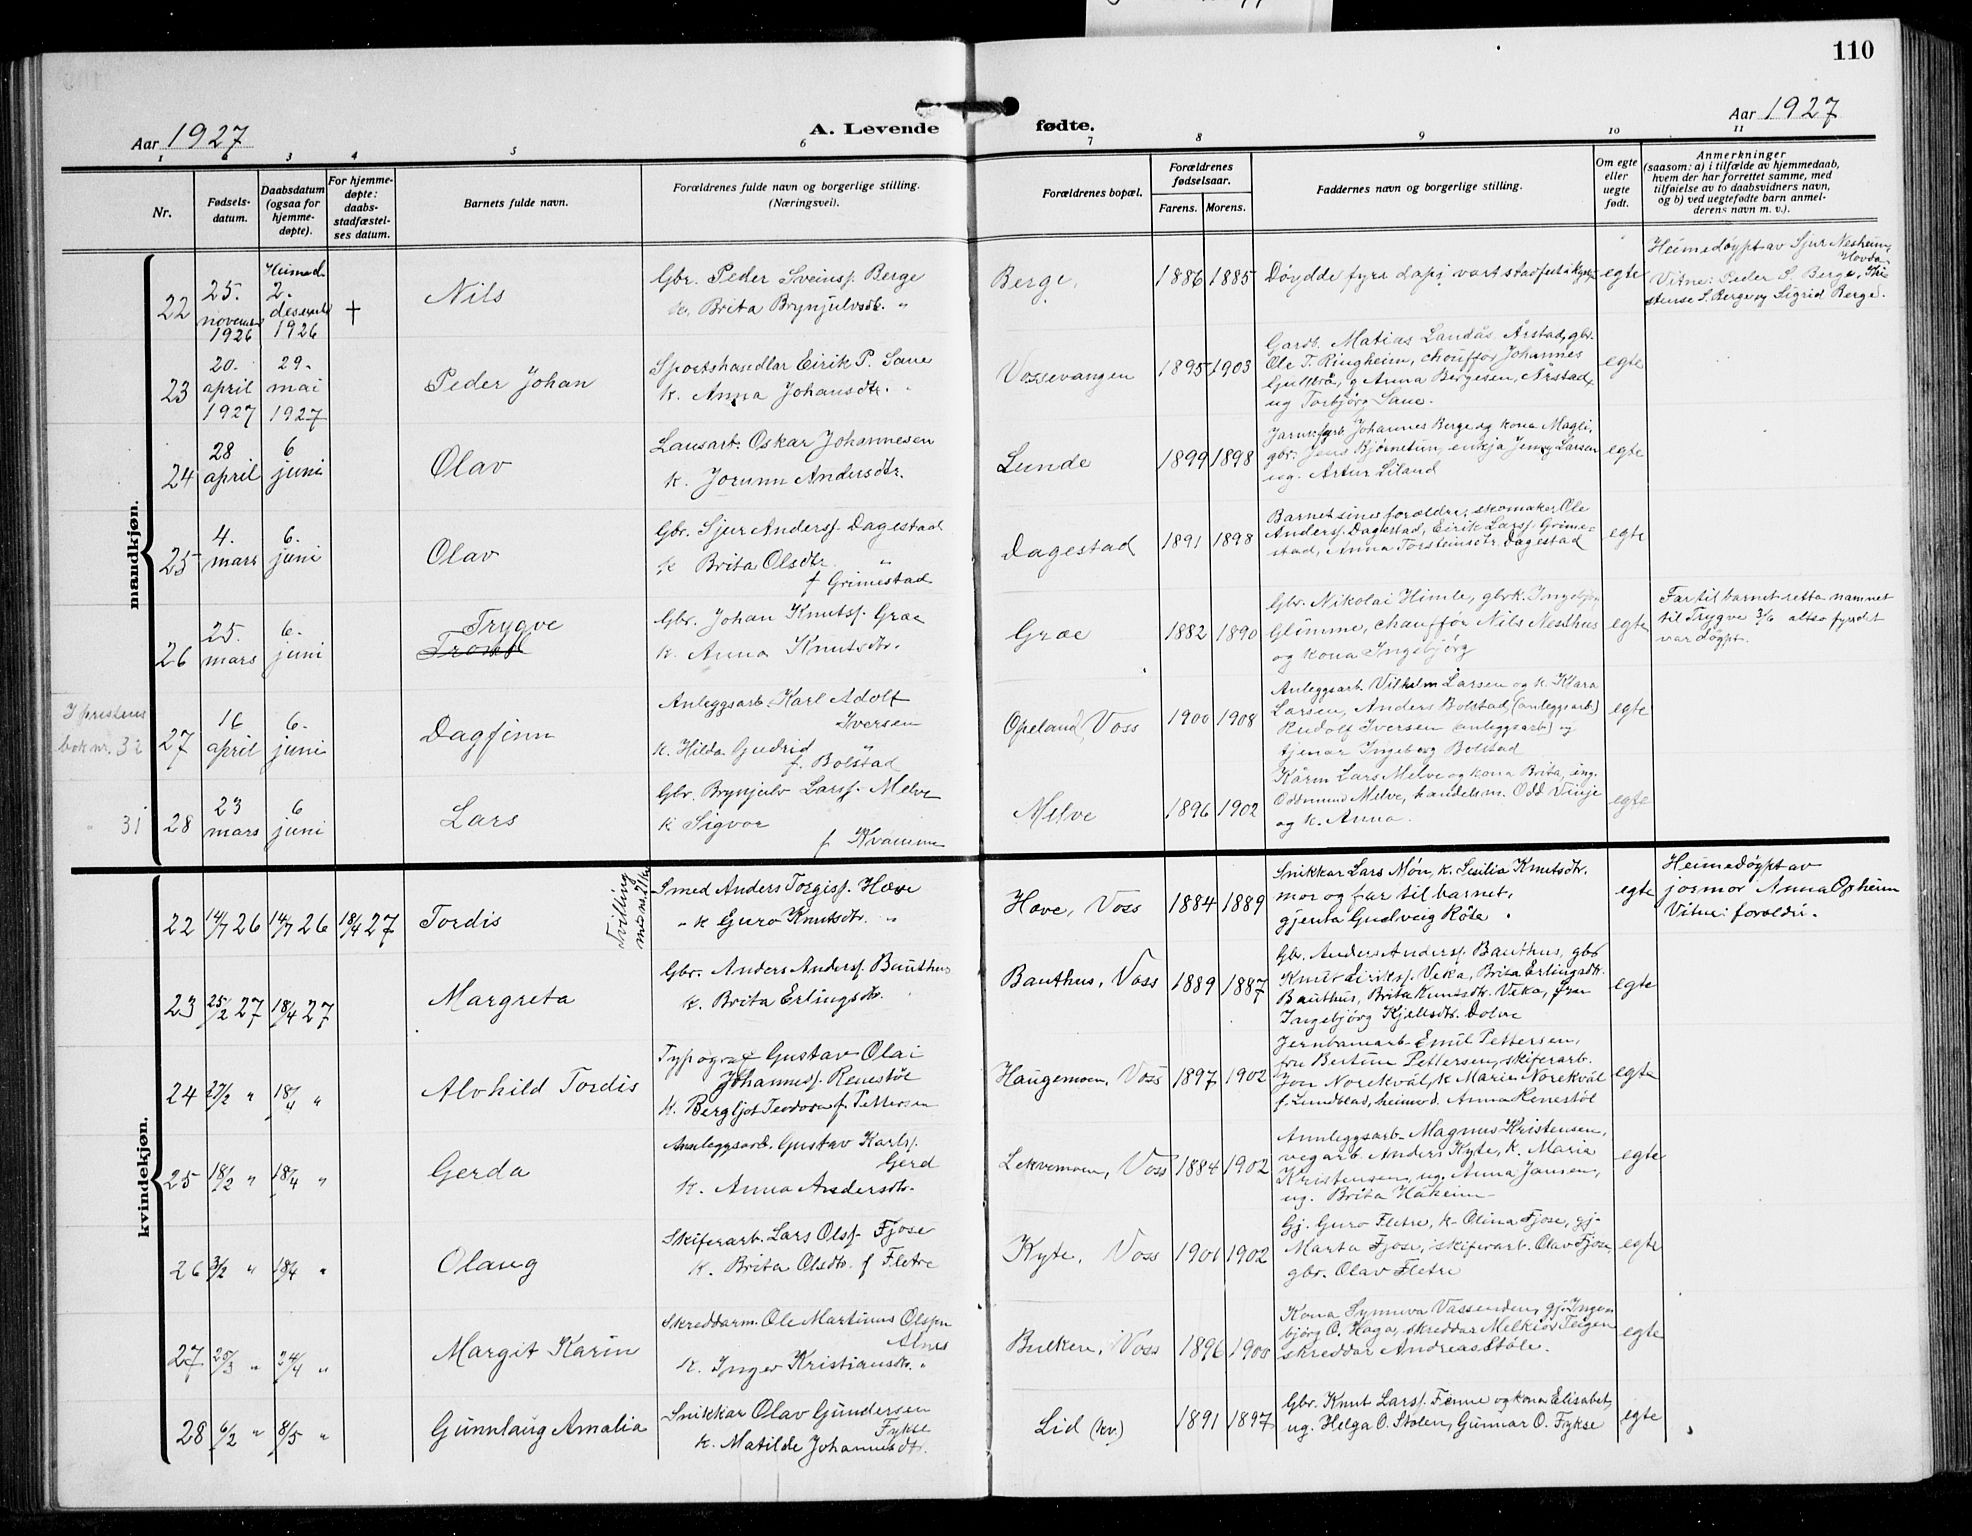 110
Aar 1927
A. Levende
fødte.
Aar 1927
1 2 3 4 5 6 7 8 9 10 11
Nr.
Fødsels-
datum.
Daabsdatum
(ogsaa for
hjemme-
døpte).
For hjemme-
døpte:
daabs-
stadfæstel-
ses datum.
Barnets fulde navn.
Forældrenes fulde navn og borgerlige stilling.
(Næringsvei).
Forældrenes bopæl.
Forældrenes
fødselsaar.
Farens. Morens.
Faddernes navn og borgerlige stilling.
Om egte
eller
uegte
født.
Anmerkninger
(saasom: a) i tilfælde av hjemmedaab,
hvem der har forrettet samme, med
tilføielse av to daabsvidners navn,
og b) ved uegtefødte barn anmel-
derens navn m. v.).
mandkjøn.
22
25.
november
1926
Heimed.
2.
desember
1926
†
Nils
Gbr. Peder Sveinsf. Berge
k. Brita Brynjulvsdtr. "
Berge,
1886 1885
Døydde fyre dåpi vart stadfest i kyrkja
egte
Heimedøypt av Sjur Nesheim,
Hovda
Vitne: Peder S. Berge, Kri
stense S. Berge og Sigrid Berge.
23
20.
april
1927
29.
mai
1927
Peder Johan
Sportshandlar Eirik P. Saue
k. Anna Johansdtr. "
Vossevangen
1895 1903
Gardb. Matias Landås, Årstad, gbr.
Ole T. Ringheim, chouffør Johannes
Gullbrå, g. Anna Bergesen, Årstad,
ug Torbjørg Saue.
egte
24
28
april
6
juni
Olav
Lausarb. Oskar Johannesen
k. Jorunn Andersdtr.
Lunde
1899 1898
Jarnb.fyrb. Johannes Berge og kona Magli,
gbr. Jens Bjørnetun, enkja Jenny Larsen
ug. Artur Liland
egte
25
4.
mars
6.
juni
Olav
Gbr. Sjur Andersf. Dagestad
k Brita Olsdtr. "
f Grimestad
Dagestad
1891 1898
Barnet sine foreldre, skomaker Ole
Andersf. Dagestad, Eirik Larsf. Grime-
stad, Anna Torsteinsdtr. Dagestad
egte
26
25.
mars
6.
juni
Trygve
Gbr. Johan Knutsf. Græe
k. Anna Knutsdtr.
Græe
1882 1890
Gbr. Nikolai Himle, gbrk. Ingebjørg
Glimme, chauffør Nils Nesthus
og kona Ingebjørg
egte
Far til barnet retta namnet
til Trygve 3/6 altso fyredet
var døypt.
I prestens
bok nr. 32
27
16
april
6.
juni
Dagfinn
Anleggsarb. Karl Adolf
Iversen
k. Hilda Gudrid
f. Bolstad
Opeland, Voss
1900 1908
Anleggsarb. Vilhelm Larsen og k. Klara
Larsen, Anders Bolstad, (anleggsarb)
Rudolf Iversen (anleggsarb) og
tjenar Ingeborg Bolstad
egte
" 31
28
23
mars
6
juni
Lars
Gbr. Brynjulv Larsf. Melve
k Sigvor
f Kvamme
Melve
1896 1902
Kårm Lars Melve og kona Brita, ing.
Oddmund Melve, handelsm. Odd Vinje
og k. Anna.
egte
kvindekjøn.
22
14/7 26
14/7 26
18/4 27
Tordis
Tvilling
Smed Anders Torgisf. Hove
" k Guro Knutsdtr. "
Hove, Voss
1884 1889
Snikkar Lars Møn, k. Sisilia Knutsdtr.
mor og far til barnet,
gjenta Gudveig Røte
egte
Heimedøypt av
josmor Anna Opheim
Vitne: foreldri.
23
25/2 27
18/4 27
Margreta
Gbr. Anders Andersf. Bauthus
k. Brita Erlingsdtr. "
Bauthus, Voss
1889 1887
Gbr. Anders Andersf. Bauthus, gbr
Knut Eiriksf. Veka, Brita Erlingsdtr.
Bauthus, Brita Knutsdtr. Veka,
Ingebjørg Kjellsdtr. Dolve
egte
24
27/2 "
18/4 "
Alvhild Tordis
Typograf Gustav Olai
Johannesf. Renestøl
k. Bergljot Teodora f. Pettersen
Haugemoen, Voss
1897 1902
Jernbanarb Emil Pettersen,
fru Bertine Pettersen, skiferarb.
Jon Norekvål, k. Marie Norekvål
f. Lundblad, heimev. Anna Renestøl
egte
25
18/2 "
18/4 "
Gerda
Annleggsarb. Gustav Karlsf.
Gerd
k. Anna Andersdtr.
Lekvemoen, Voss
1884 1902
Annleggsarb. Magnus Kristensen,
vegarb Anders Kyte, k. Maria
Kristensen, ug. Anna Jansen,
ug. Brita Håheim
egte
26
3/2 "
18/4 "
Olaug
Skiferarb. Lars Olsf. Fjose
k. Brita Olsdtr. f Fletre
Kyte, Voss
1901 1902
Gj. Guro Fletre, k. Olina Fjose, gj.
Marta Fjose, skiferarb. Olav Fjose,
gbr. Olav Fletre
egte
27
25/3 "
24/4 "
Margit Karin
Skreddarm. Ole Martinus Olsen
Alnes
k. Inger Kristiansdtr. "
Bulken, Voss
1896 1900
Kona Synneva Vassenden, gj. Inge
bjørg O. Haga, skreddar Melkior Teigen
skreddar Andreas Støle.
egte
28
6/2 "
8/5 "
Gunnlaug Amalia
Snikkar Olav Gundersen
Fykse
k. Matilde Johannesdtr.
Lid (kv.)
1891 1897
Gbr. Knut Larsf. Fenne og kona Elisabet,
ug. Helga O. Stolen, Gunnar O. Fykse
egte